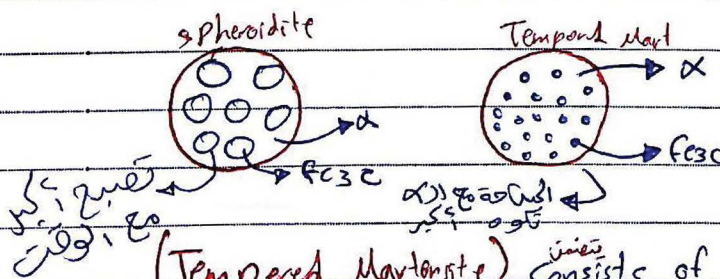 spheroidite
Tempord Mart
α
α
Fe3C
Fe3C
تصبح أكبر
مع الوقت
المساحة مع الα
تكون أكبر
تتضمن
(Tempered Martensite) Consists of